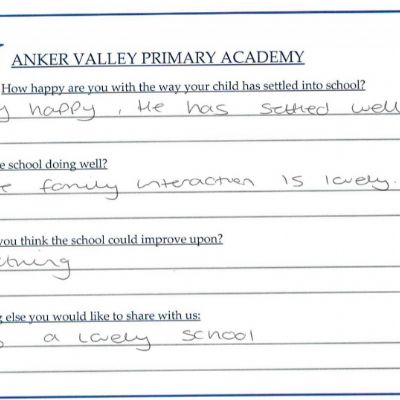 ANKER VALLEY PRIMARY ACADEMY
How happy are you with the way your child has settled into school?
y happy, He has settled well
e school doing well?
e family interaction is lovely.
you think the school could improve upon?
thing
g else you would like to share with us:
a lovely school